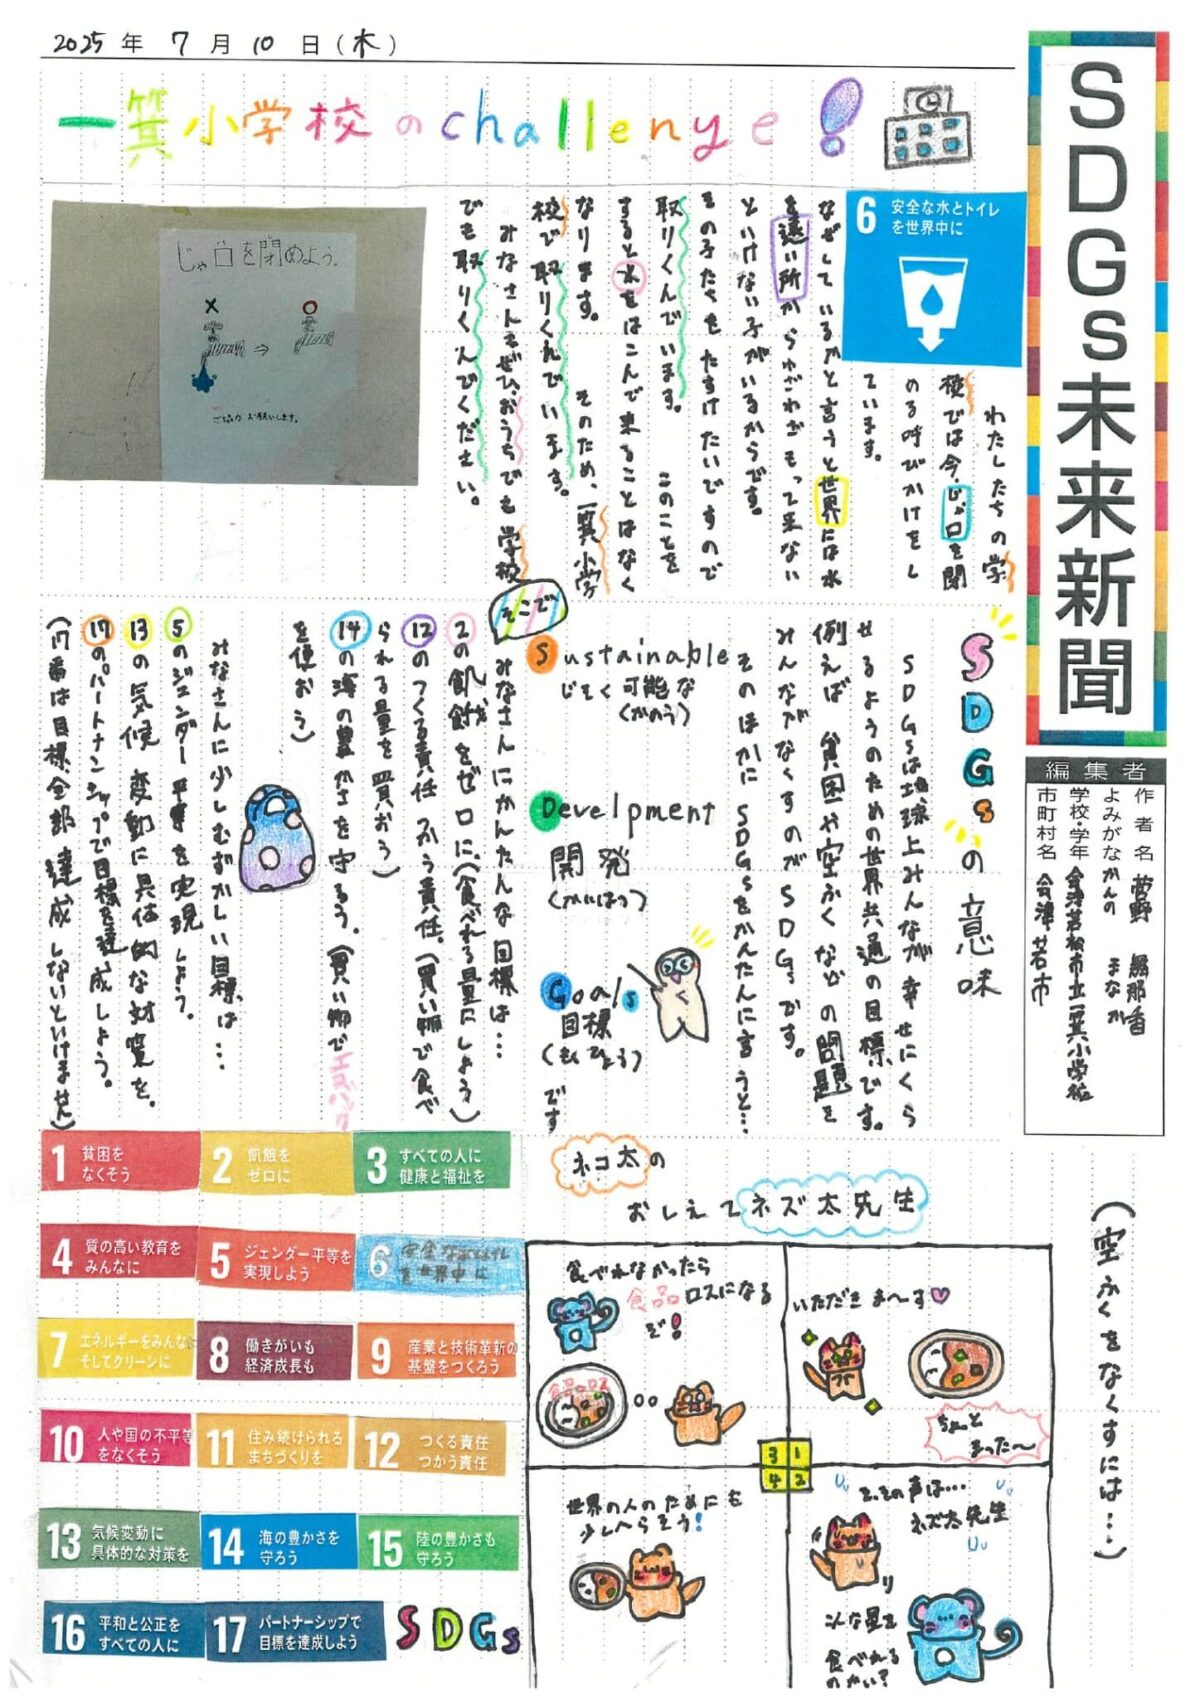 2025年 7月 10日(木)
SDGs未来新聞
編集者
作者名 菅野
よみがな かんの まなか
学校・学年 会津若松市立一箕小学校
市町村名 会津若市
一箕小学校のchallenge!
6 安全な水とトイレ
を世界中に
じゃ口を閉めよう。
ご協力お願いします。
わたしたちの学
校では今、じゃ口を閉
める呼びかけをし
ています。
なぜしているかと言うと世界には水
を遠い所からわざわざもって来ない
といけない子がいるからです。
その子たちをたすけたいですので
取りくんでいます。 このことを
すると水をはこんで来ることはなく
なります。 そのため、一箕小学
校で取りくんでいます。
みなさんもぜひ、おうちでも学校
でも取りくんでください。
SDGsの意味
SDGsは地球上みんなが幸せにくら
せるようのための世界共通の目標です。
例えば 貧困や空ふくなどの問題を
みんながなくすのがSDGsです。
そのほかに SDGsをかんたんに言うと…
Sustainable
じぞく可能な
(かのう)
Develpment
開発
(かいはつ)
Goals
目標
(もくひょう)
です
そこで
みなさんにかんたんな目標は…
2の飢餓をゼロに、(食べれる量にしよう)
12のつくる責任 つかう責任。(買い物で食べ
られる量を買おう)
14の海の豊かさを守ろう。(買い物でエコバック
を使おう)
みなさんに少しむずかしい目標は…
5のジェンダー平等を実現しよう。
13の気候変動に具体的な対策を。
17のパートナーシップで目標を達成しよう。
(17番は目標全部達成しないといけません)
1 貧困を
なくそう
2 飢餓を
ゼロに
3 すべての人に
健康と福祉を
4 質の高い教育を
みんなに
5 ジェンダー平等を
実現しよう
6 安全な水とトイレ
を世界中に
7 エネルギーをみんな
そしてクリーンに
8 働きがいも
経済成長も
9 産業と技術革新の
基盤をつくろう
10 人や国の不平等
をなくそう
11 住み続けられる
まちづくりを
12 つくる責任
つかう責任
13 気候変動に
具体的な対策を
14 海の豊かさを
守ろう
15 陸の豊かさも
守ろう
16 平和と公正を
すべての人に
17 パートナーシップで
目標を達成しよう
SDGs
ネコ太の
おしえてネズ太先生
(空ふくをなくすには…)
1
いただきま〜す
ちょっと
まった〜
2
そ、その声は…
ネズ太先生
こんな量を
食べれる
のかい?
3
食べれなかったら
食品ロスになる
ぞ!
食品ロス
4
世界の人のためにも
少しへらそう!